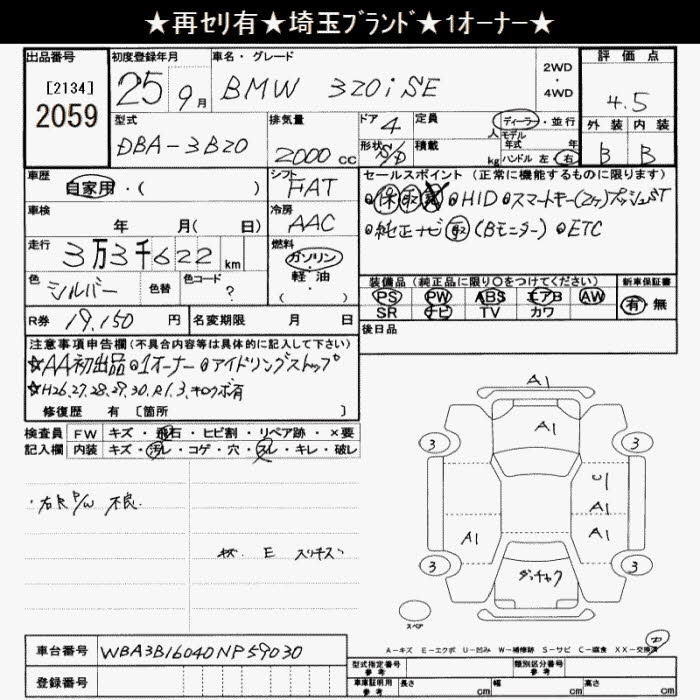 ★再セリ有★埼玉ﾌﾞﾗﾝﾄﾞ★1オーナー★
出品番号 初度登録年月 車名・グレード 評価点
[2134]
2059
25 9月 BMW 320i SE
2WD
・
4WD
4.5
型式 排気量 ドア 定員 ディーラー・並行 外装 内装
DBA-3B20 2000 cc 4 人 モデル年式 年 B B
形状 S/D 積載 kg ハンドル 左 右
車歴 シフト セールスポイント (正常に機能するものに限ります)
自家用・( ) FAT
保 取 HID スマートキー(2ヶ)プッシュST
車検 冷房
年 月( 日) AAC
純正ナビ 取 (Bモニター) ETC
走行 燃料
3万3千622 km ガソリン・軽・油・( )
色 シルバー 色替 色コード ?
装備品 (純正品に限り○をつけてください) 新車保証書
PS PW ABS エアB AW 有・無
SR ナビ TV カワ
R券 19,150 円 名変期限 月 日
後日品
注意事項申告欄(不具合内容等は具体的に記入して下さい)
☆AA初出品 1オーナー アイドリングストップ
☆H26.27.28.29.30.R1.3.キロクボ有
修復歴 有 [箇所 ]
検査員 FW キズ・飛石・ヒビ割・リペア跡・×要
記入欄 内装 キズ・汚レ・コゲ・穴・スレ・キレ・破レ
・右R P/W 不良
キズ E スリキズ
A1
A1
3 3
U1
A1
A1 A1
3 3
ダッチャク
スペア
A-キズ E-エクボ U-凹み W-補修跡 S-サビ C-腐食 XX-交換済
車台番号 WBA3B16040NP59030
登録番号
型式指定番号 参考 類別区分番号 参考
車庫証明用 参考 長さ cm 幅 cm 高さ cm